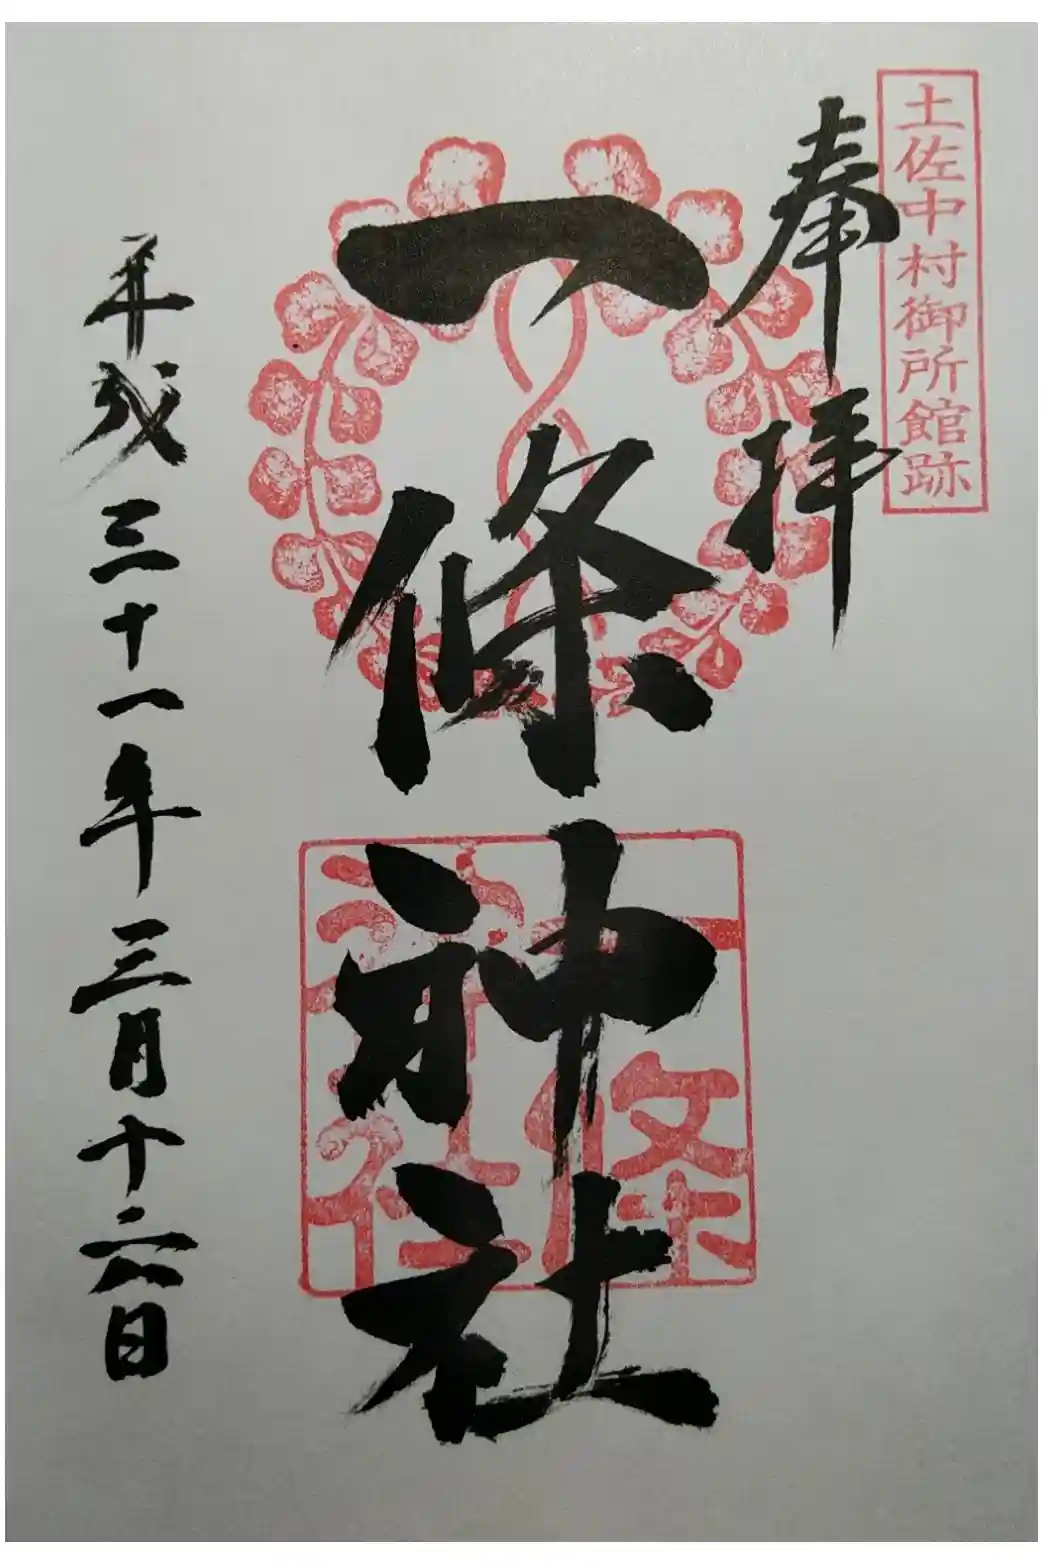 土佐中村御所館跡
奉拝
一條神社
一條神社
平成三十一年三月十六日